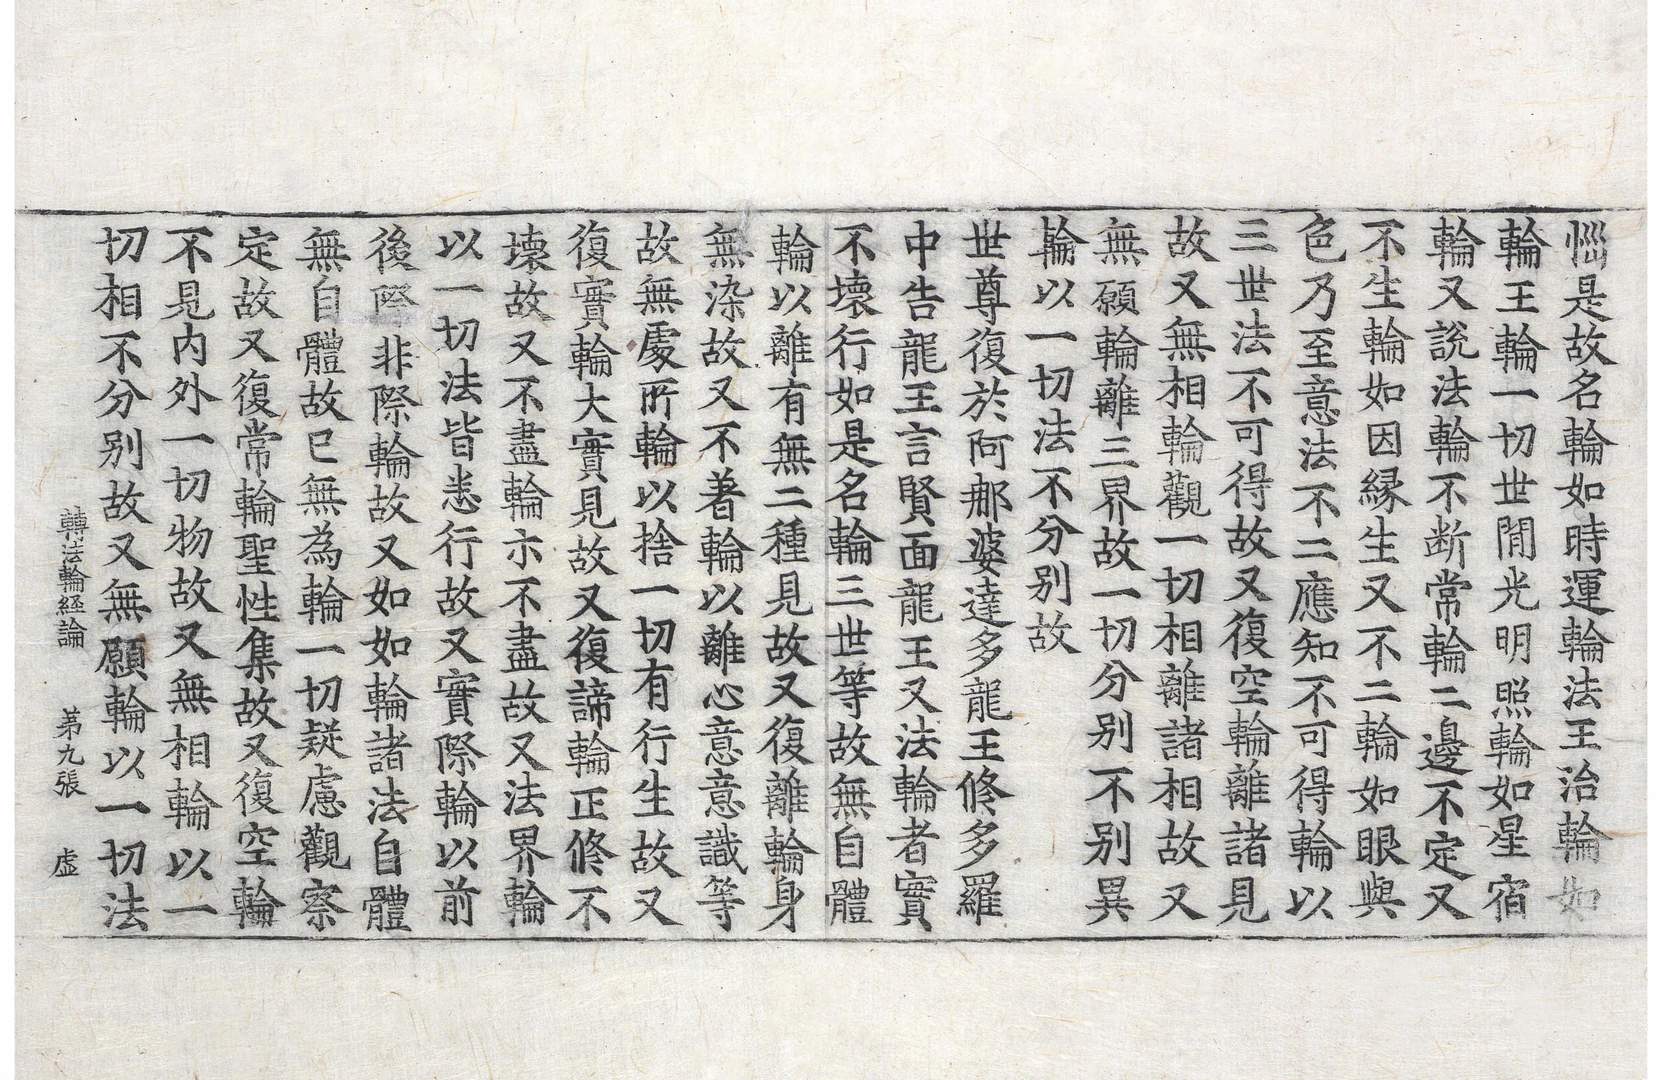 惱是故名輪如時運輪法王治輪如
輪王輪一切世間光明照輪如星宿
輪又說法輪不断常輪二邊不定又
不生輪如因縁生又不二輪如眼與
色乃至意法不二應知不可得輪以
三世法不可得故又復空輪離諸見
故又無相輪觀一切相離諸相故又
無願輪離三界故一切分別不別異
輪以一切法不分別故
世尊復於阿那婆達多龍王修多羅
中告龍王言賢面龍王又法輪者實
不壞行如是名輪三世等故無自體
輪以離有無二種見故又復離輪身
無染故又不著輪以離心意意識等
故無處所輪以捨一切有行生故又
復實輪大實見故又復諦輪正修不
壞故又不盡輪示不盡故又法界輪
以一切法皆悉行故又實際輪以前
後際非際輪故又如如輪諸法自體
無自體故已無為輪一切疑慮觀察
定故又復常輪聖性集故又復空輪
不見内外一切物故又無相輪以一
切相不分別故又無願輪以一切法
轉法輪經論 第九張 虛